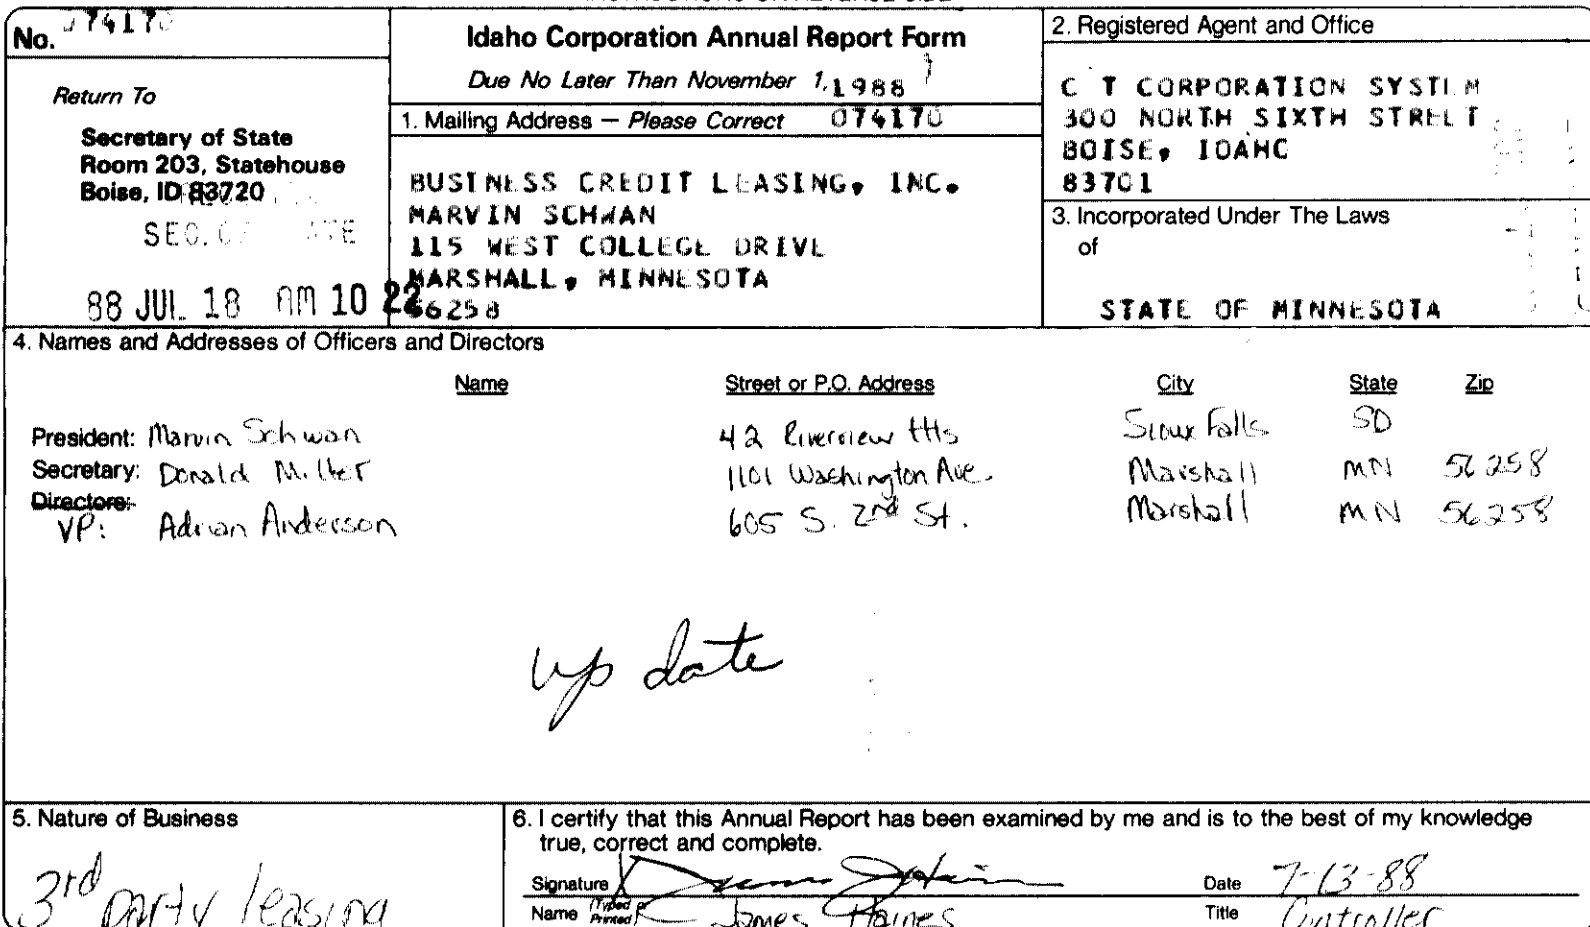 No. 074170
Idaho Corporation Annual Report Form
Due No Later Than November 1, 1988
Return To
Secretary of State
Room 203, Statehouse
Boise, ID 83720
SEC. OF STATE
88 JUL 18 AM 10 22
1. Mailing Address — Please Correct 074170
BUSINESS CREDIT LEASING, INC.
MARVIN SCHWAN
115 WEST COLLEGE DRIVE
MARSHALL, MINNESOTA
56258
2. Registered Agent and Office
C T CORPORATION SYSTEM
300 NORTH SIXTH STREET
BOISE, IDAHO
83701
3. Incorporated Under The Laws
of
STATE OF MINNESOTA
4. Names and Addresses of Officers and Directors
Name Street or P.O. Address City State Zip
President: Marvin Schwan 42 Riverview Hts Sioux Falls SD
Secretary: Donald Miller 1101 Washington Ave. Marshall MN 56258
Directors:
VP: Adrian Anderson 605 S. 2nd St. Marshall MN 56258
up date
5. Nature of Business
3rd party leasing
6. I certify that this Annual Report has been examined by me and is to the best of my knowledge
true, correct and complete.
Signature Date 7-13-88
Name (Typed or Printed) James Haines Title Controller